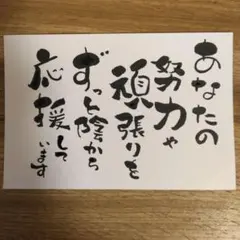 あなたの
努力や
頑張りを
ずっと陰から
応援して
います